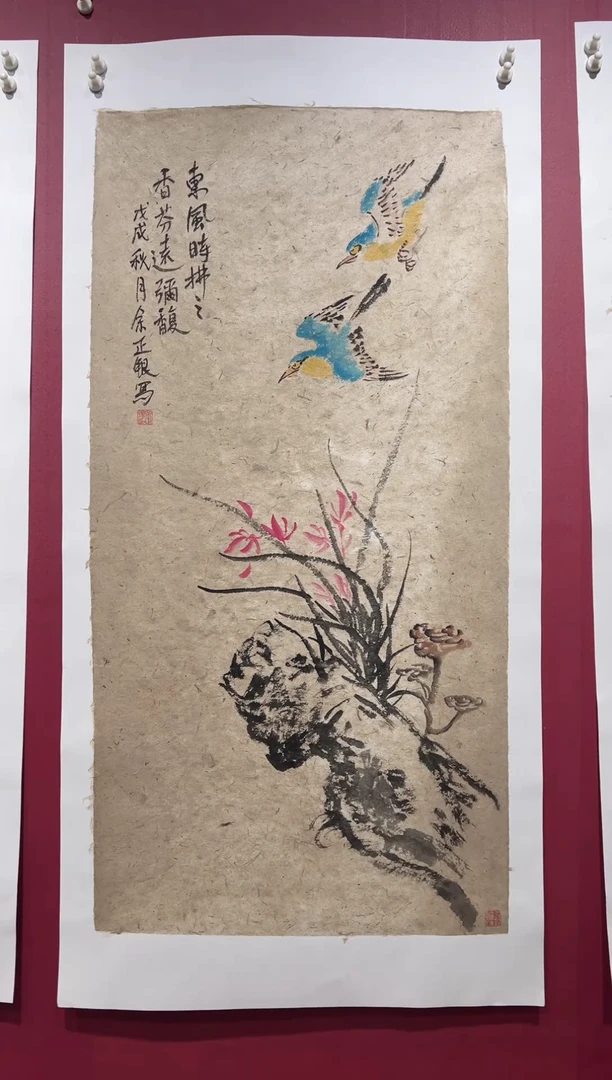 東風時拂之
香芬遠彌馥
戊戌秋月余正銀寫